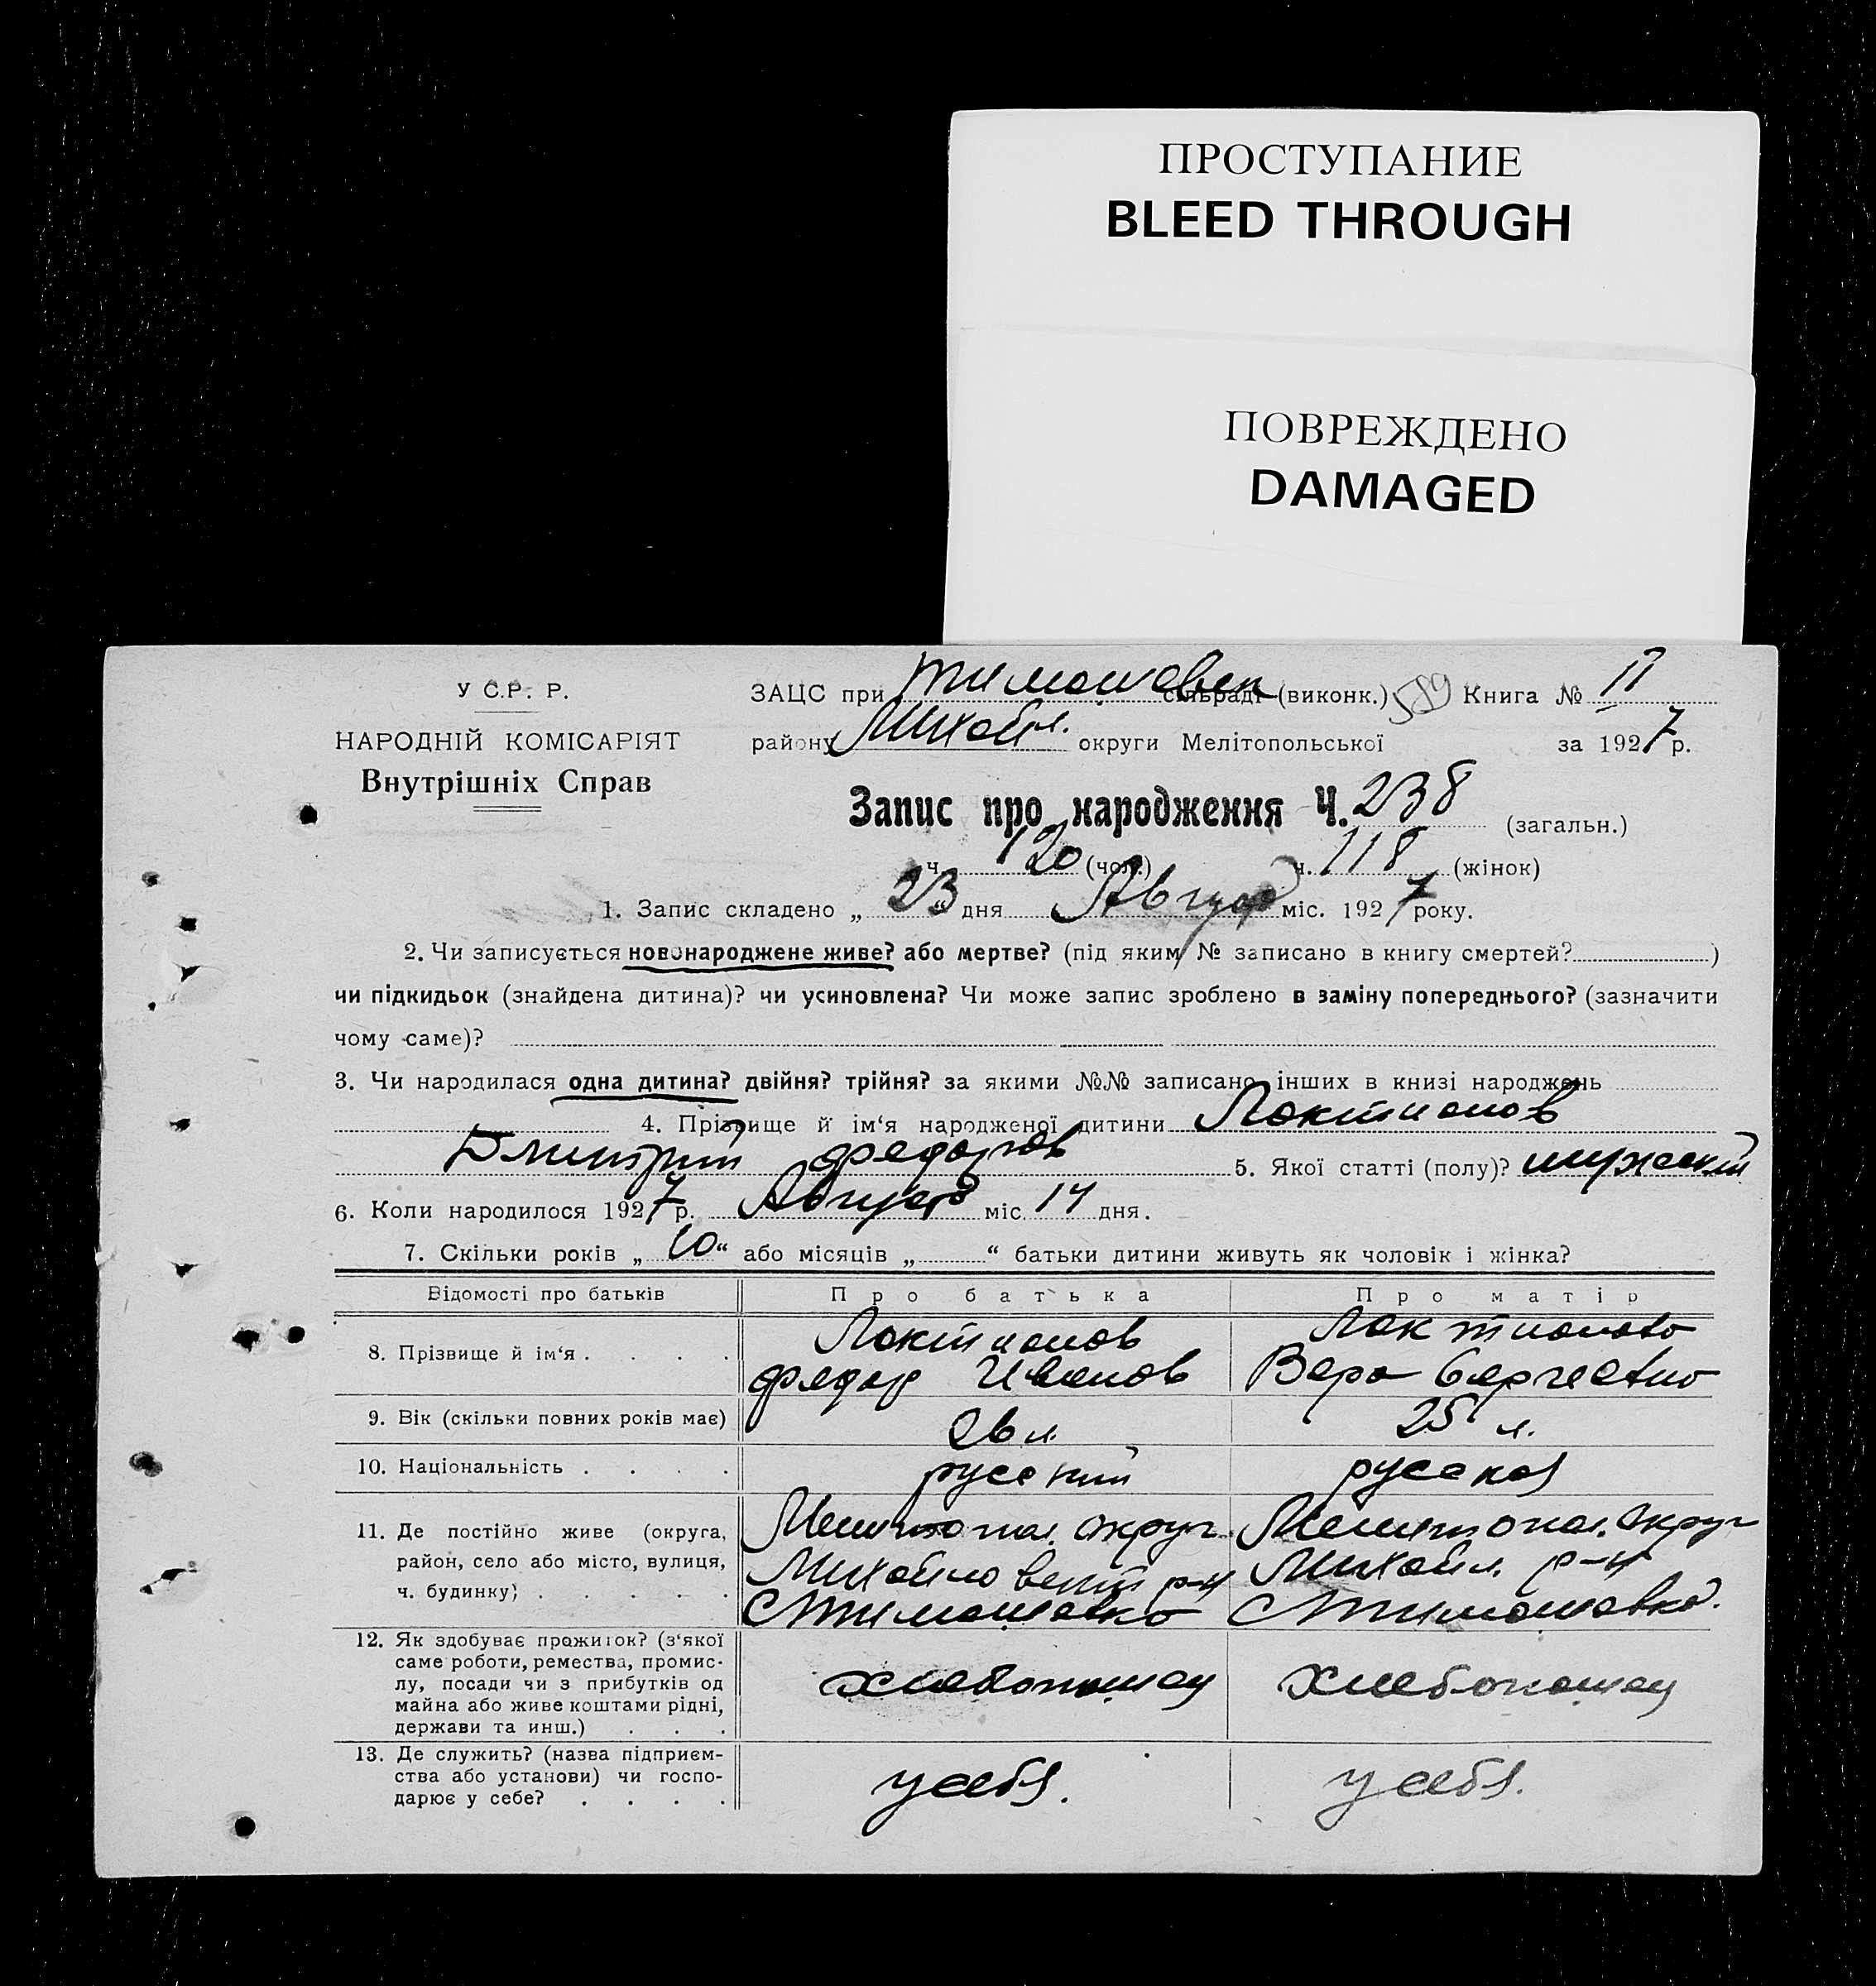 ПРОСТУПАНИЕ
BLEED THROUGH
ПОВРЕЖДЕНО
DAMAGED
У С.Р. Р.
НАРОДНІЙ КОМІСАРІЯТ
Внутрішніх Справ
ЗАЦС при Тимошевск сільраді (виконк.) 589 Книга № II
району Михайл. округи Мелітопольської за 1927 р.
Запис про народження Ч. 238 (загальн.)
ч. 120 (чол.) ч. 118 (жінок)
1. Запис складено „ 23 “ дня Август міс. 1927 року.
2. Чи записується новонароджене живе? або мертве? (під яким № записано в книгу смертей? )
чи підкидьок (знайдена дитина)? чи усиновлена? Чи може запис зроблено в заміну попереднього? (зазначити
чому саме)?
3. Чи народилася одна дитина? двійня? трійня? за якими №№ записано інших в книзі народжень
4. Прізвище й ім‘я народженої дитини Локтионов
Дмитрий Федоров 5. Якої статті (полу)? мужский
6. Коли народилося 1927 р. Август міс. 14 дня.
7. Скільки років „ 10 “ або місяців „ “ батьки дитини живуть як чоловік і жінка?
Відомості про батьків Про батька Про матір
8. Прізвище й ім‘я . . . . Локтионов Локтионова
Федор Иванов Вера Сергеевно
9. Вік (скільки повних років має) 26 л. 25 л.
10. Національність . . . . русский русская
11. Де постійно живе (округа, Мелитопол. округ. Мелитопол. округ
район, село або місто, вулиця, Михайловский р-н Михайл. р-н
ч. будинку) . . . . . С Тимошовка С Тимошовка.
12. Як здобуває прожиток? (з‘якої
саме роботи, ремества, промис-
лу, посади чи з прибутків од хлебопашец хлебопашец
майна або живе коштами рідні,
держави та инш.) . . .
13. Де служить? (назва підприєм-
ства або установи) чи госпо- у себя. у себя.
дарює у себе? . . . .